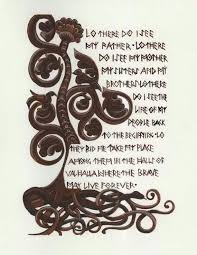 LO THERE DO I SEE
MY FATHER · LO THERE
DO I SEE MY MOTHER
MY SISTERS AND MY
BROTHERS LO THERE
DO I SEE THE
LINE OF MY
PEOPLE BACK
TO THE BEGINNING · LO
THEY BID ME TAKE MY PLACE
AMONG THEM IN THE HALLS OF
VALHALLA WHERE THE BRAVE
MAY LIVE FOREVER ·